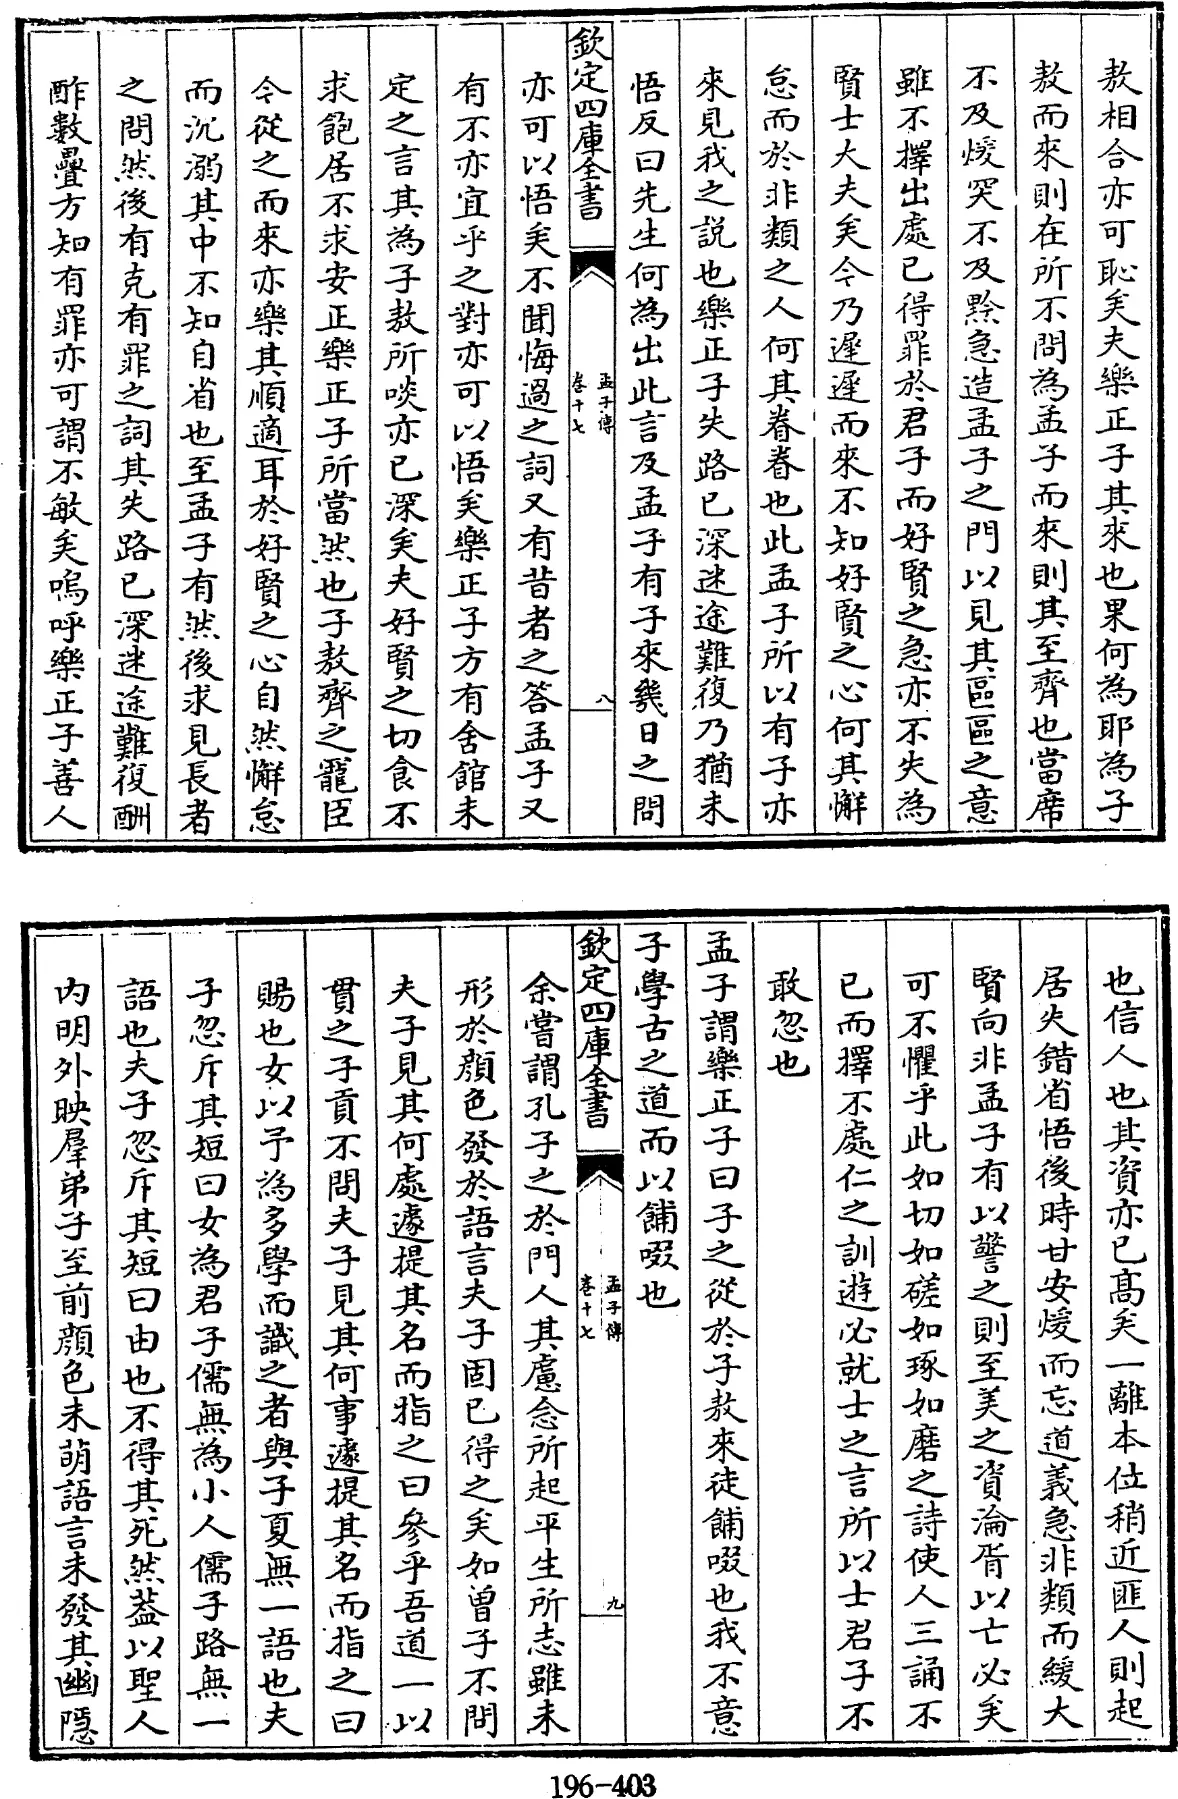 敖相合亦可恥矣夫樂正子其來也果何為耶為子
敖而來則在所不問為孟子而來則其至齊也當席
不及煖突不及黔急造孟子之門以見其區區之意
雖不擇出處已得罪於君子而好賢之急亦不失為
賢士大夫矣今乃遲遲而來不知好賢之心何其懈
怠而於非類之人何其眷眷也此孟子所以有子亦
來見我之説也樂正子失路已深迷途難復乃猶未
悟反曰先生何為出此言及孟子有子來幾日之問
欽定四庫全書
孟子傳
卷十七
八
亦可以悟矣不聞悔過之詞又有昔者之答孟子又
有不亦宜乎之對亦可以悟矣樂正子方有舍館未
定之言其為子敖所啖亦已深矣夫好賢之切食不
求飽居不求安正樂正子所當然也子敖齊之寵臣
今從之而來亦樂其順適耳於好賢之心自然懈怠
而沉溺其中不知自省也至孟子有然後求見長者
之問然後有克有罪之詞其失路已深迷途難復酬
酢數疊方知有罪亦可謂不敏矣嗚呼樂正子善人
也信人也其資亦已髙矣一離本位稍近匪人則起
居失錯省悟後時甘安煖而忘道義急非類而緩大
賢向非孟子有以警之則至美之資淪胥以亡必矣
可不懼乎此如切如磋如琢如磨之詩使人三誦不
已而擇不處仁之訓遊必就士之言所以士君子不
敢忽也
孟子謂樂正子曰子之從於子敖來徒餔啜也我不意
子學古之道而以餔啜也
欽定四庫全書
孟子傳
卷十七
九
余嘗謂孔子之於門人其慮念所起平生所志雖未
形於顔色發於語言夫子固已得之矣如曾子不問
夫子見其何處遽提其名而指之曰參乎吾道一以
貫之子貢不問夫子見其何事遽提其名而指之曰
賜也女以予為多學而識之者與子夏無一語也夫
子忽斥其短曰女為君子儒無為小人儒子路無一
語也夫子忽斥其短曰由也不得其死然葢以聖人
内明外映羣弟子至前顔色未萌語言未發其幽隱
196-403